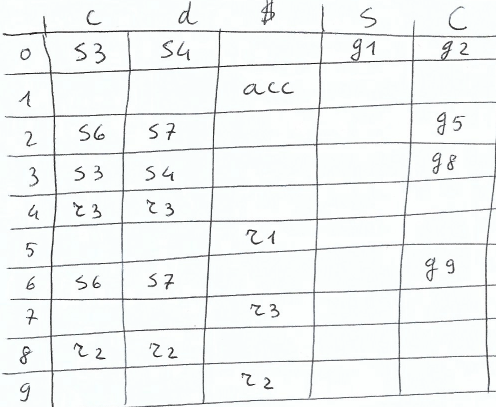 c d $ S C
0 S3 S4 g1 g2
1 acc
2 S6 S7 g5
3 S3 S4 g8
4 r3 r3
5 r1
6 S6 S7 g9
7 r3
8 r2 r2
9 r2